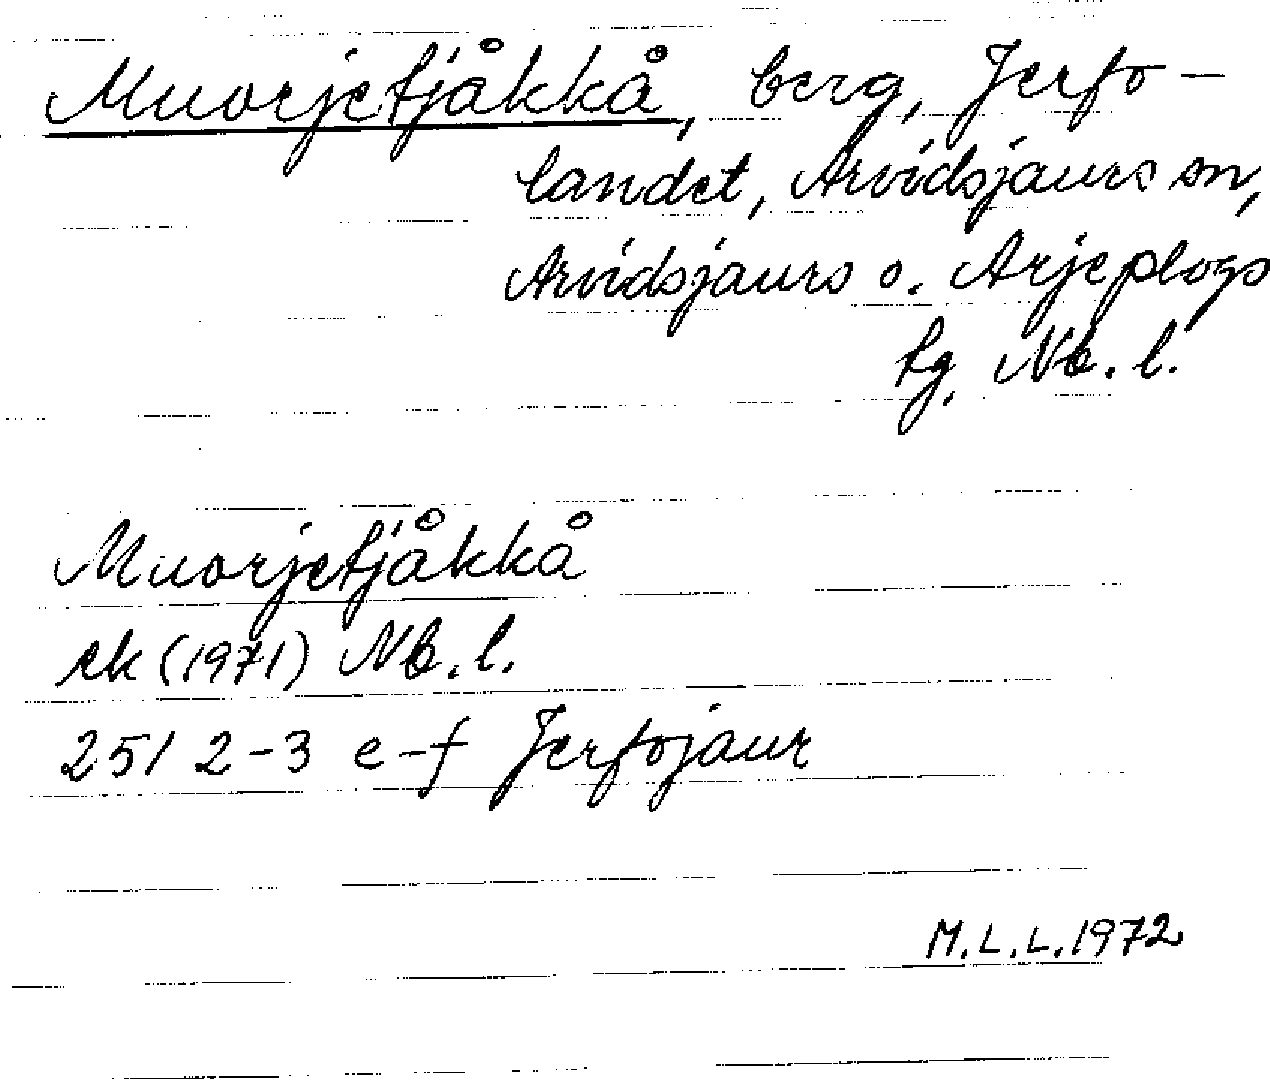 Muorjetjåkkå, berg, Jerfo-
landet, Arvidsjaurs sn,
Arvidsjaurs o. Arjeplogs
tg, Nb. l.
Muorjetjåkkå
ek (1971) Nb. l.
25I 2-3 e-f Jerfojaur
M.L.L. 1972